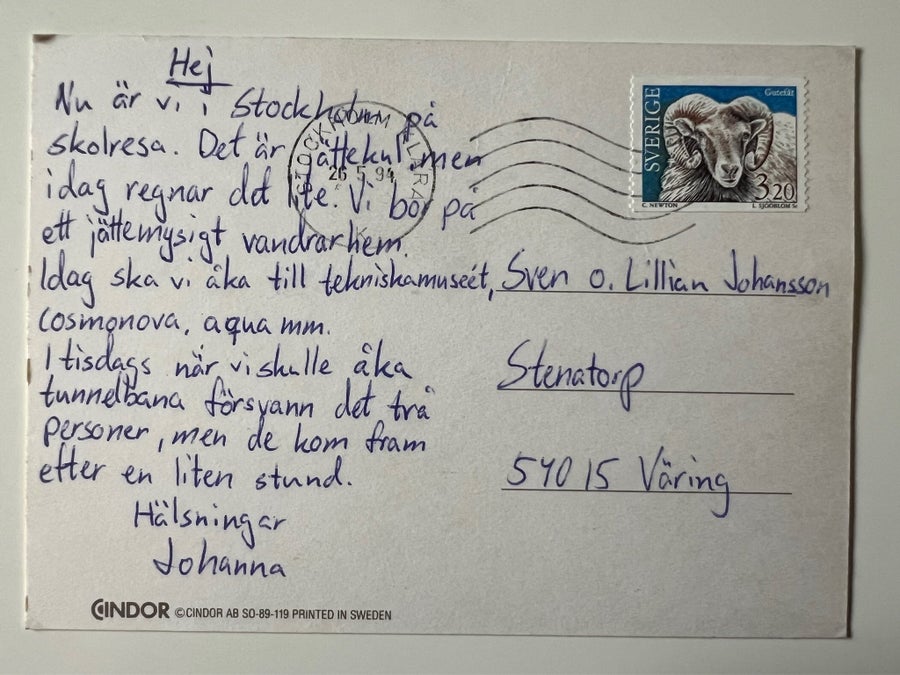 Hej
Nu är vi i Stockholm på
skolresa. Det är jättekul, men
idag regnar det lite. Vi bor på
ett jättemysigt vandrarhem.
Idag ska vi åka till tekniskamuseét,
Cosmonova, aqua mm.
I tisdags när vi skulle åka
tunnelbana försvann det två
personer, men de kom fram
efter en liten stund.
Hälsningar
Johanna
CINDOR © CINDOR AB SO-89-119 PRINTED IN SWEDEN
STOCKHOLM KLARA
26 5.94
SVERIGE
Gutefår
3,20
C. NEWTON L. SJÖÖBLOM Sc
Sven o. Lillian Johansson
Stenatorp
540 15 Väring